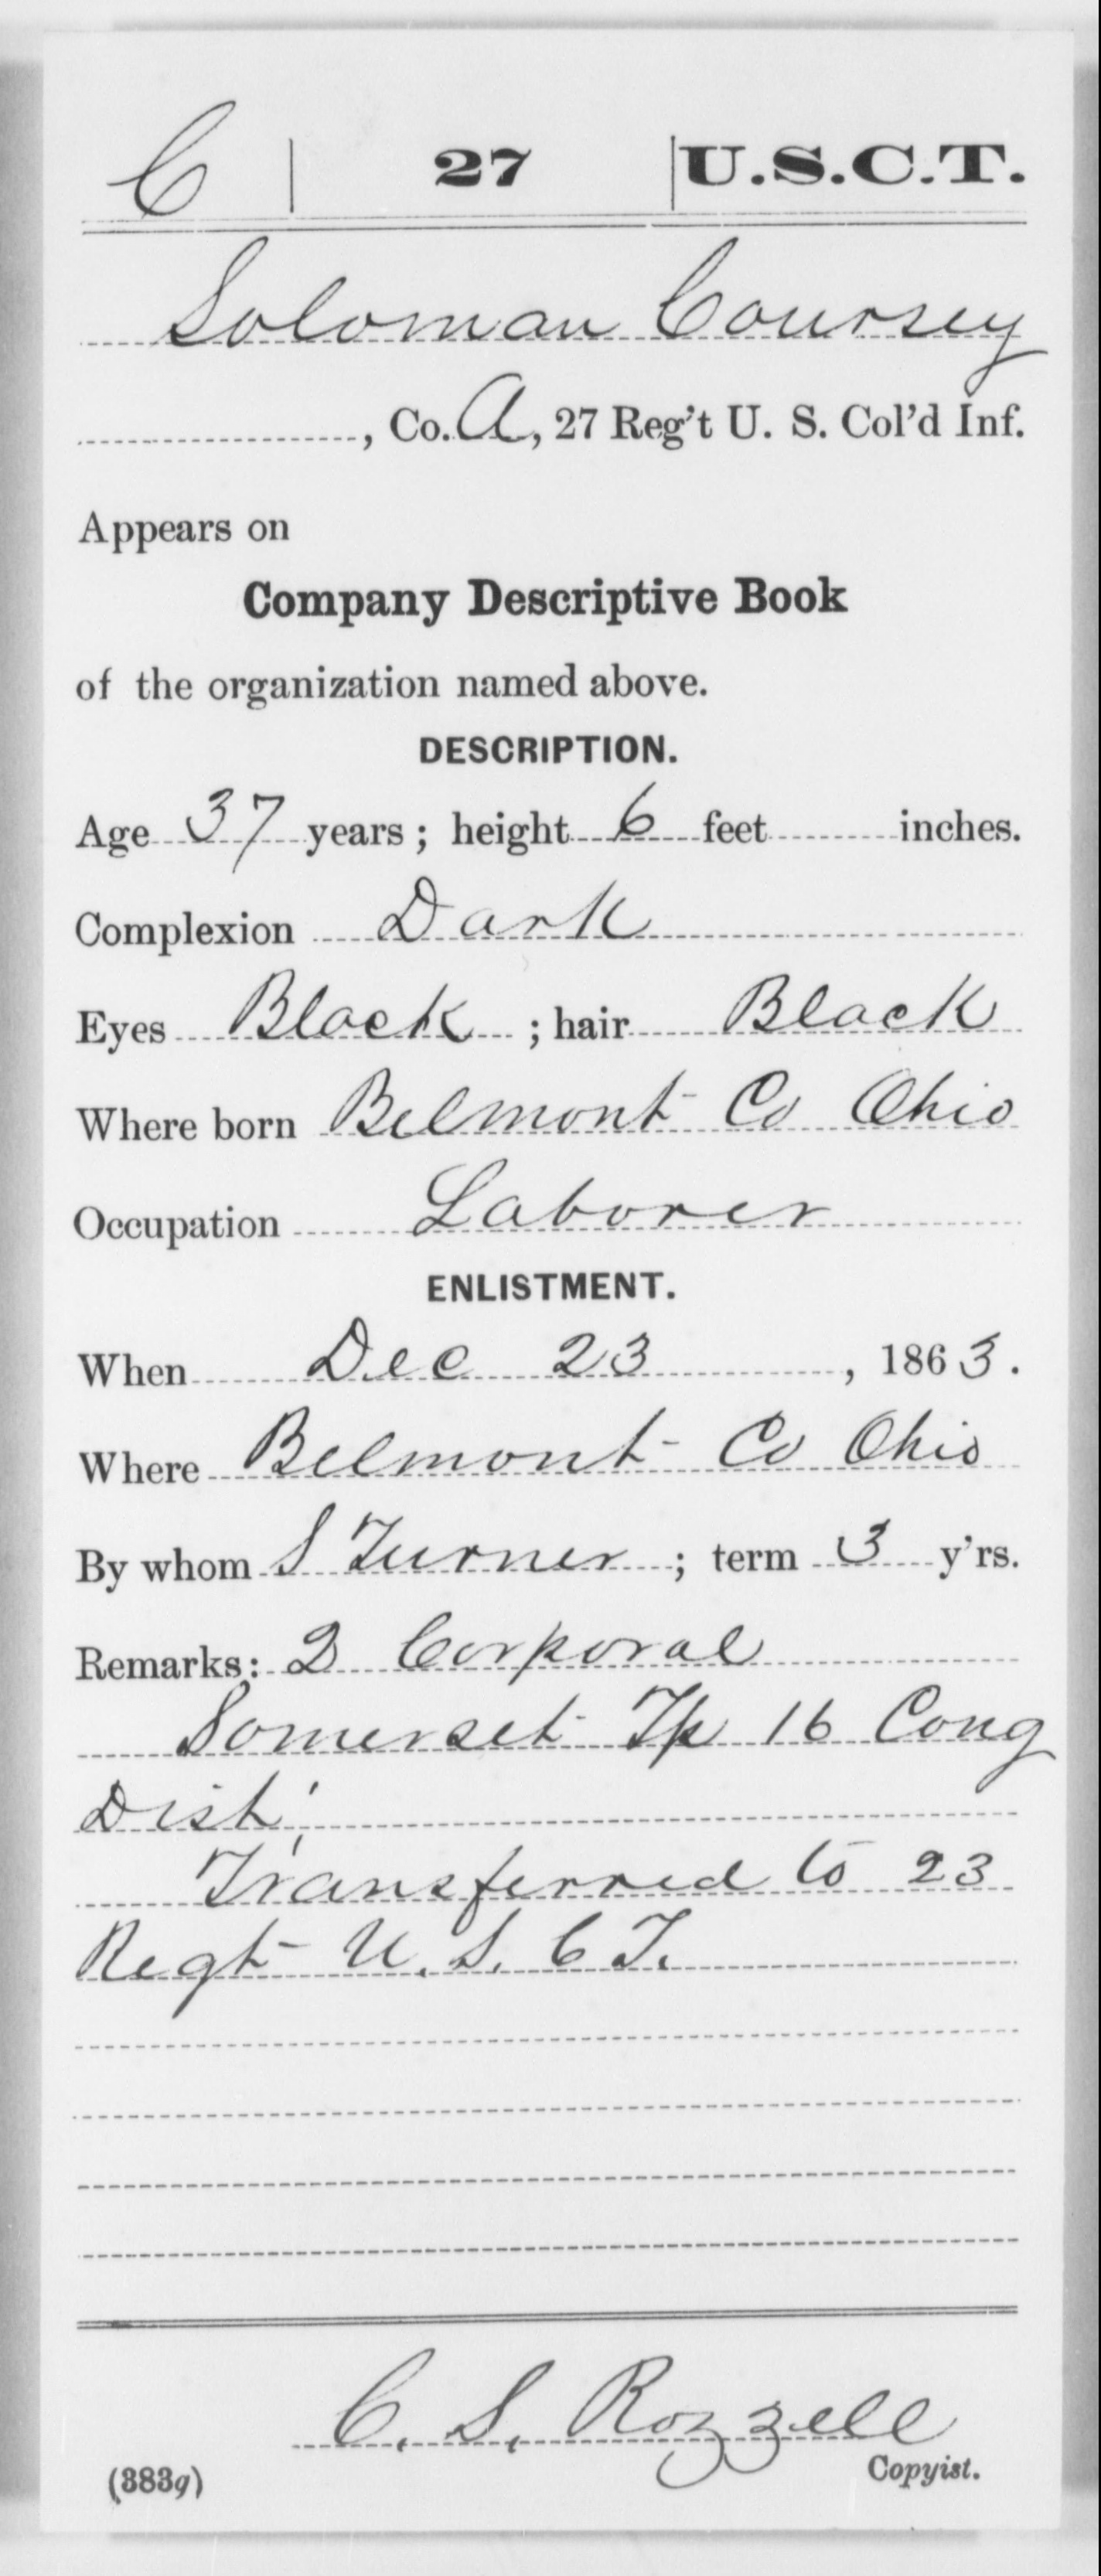 C | 27 | U.S.C.T.
Soloman Coursey
, Co. A, 27 Reg't U. S. Col'd Inf.
Appears on
Company Descriptive Book
of the organization named above.
DESCRIPTION.
Age 37 years; height 6 feet inches.
Complexion Dark
Eyes Black; hair Black
Where born Belmont Co Ohio
Occupation Laborer
ENLISTMENT.
When Dec 23, 1863.
Where Belmont Co Ohio
By whom S Turner; term 3 y'rs.
Remarks: 2 Corporal
Somerset Tp 16 Cong
Dist.
Transferred to 23
Regt U. S. C T.
C. S. Rozzell
Copyist.
(383g)